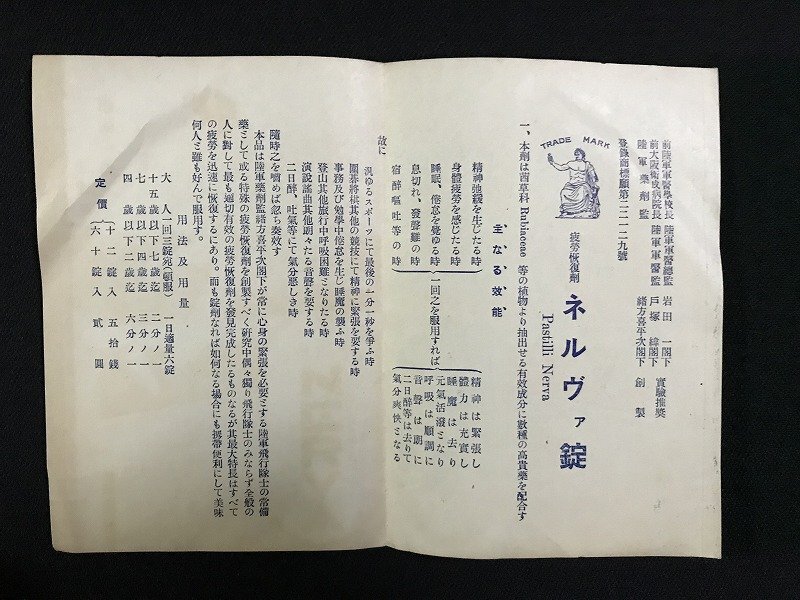 前陸軍軍醫學校長 陸軍軍醫總監 岩田 一閣下
前大阪衛戍病院長 陸軍軍醫監 戸塚 緯閣下 實驗推奬
陸軍藥劑監 緒方喜平次閣下 創製
登錄商標願第一二一一二九號
TRADE MARK
疲勞恢復劑 ネルヴァ錠
Pastilli Nerva
一、本劑は茜草科 Rubiaceae 等の植物より抽出せる有效成分に數種の高貴藥を配合す
主なる效能
精神弛緩を生じたる時
身體疲勞を感じたる時
睡眠、倦怠を覺ゆる時
息切れ、發聲難の時
宿醉嘔吐等の時
一回之を服用すれば
精神は緊張し
體力は充實し
睡魔は去り
元氣活潑となり
呼吸は順調に
音聲は朗に
二日醉等は去りて
氣分爽快となる
故に
凡ゆるスポーツにて最後の一分一秒を爭ふ時
圍碁將棋其他の競技にて精神に緊張を要する時
事務及び勉學中倦怠を生じ睡魔の襲ふ時
登山其他旅行中呼吸困難となりたる時
演說謠曲其他朗々たる音聲を要する時
二日醉、吐氣等にて氣分惡しき時
隨時之を嚙めば忽ち奏效す
本品は陸軍藥劑監緒方喜平次閣下が常に心身の緊張を必要とする陸軍飛行隊士の常備
藥として或る特殊の疲勞恢復劑を創製すべく研究中偶々獨り飛行隊士のみならず全般の
人に對して最も適切有效の疲勞恢復劑を發見完成したるものなるが其最大特長はすべて
の疲勞を迅速に恢復するにあり。而も錠劑なれば如何なる場合にも携帶便利にして美味
何人と雖も好んで服用す。
用法及用量
大人一回三錠宛(頓服) 一日適量六錠
十五歲以下七歲迄 二分ノ一
七歲以下四歲迄 三分ノ一
四歲以下二歲迄 六分ノ一
定價
十二錠入 五拾錢
六十錠入 貳圓